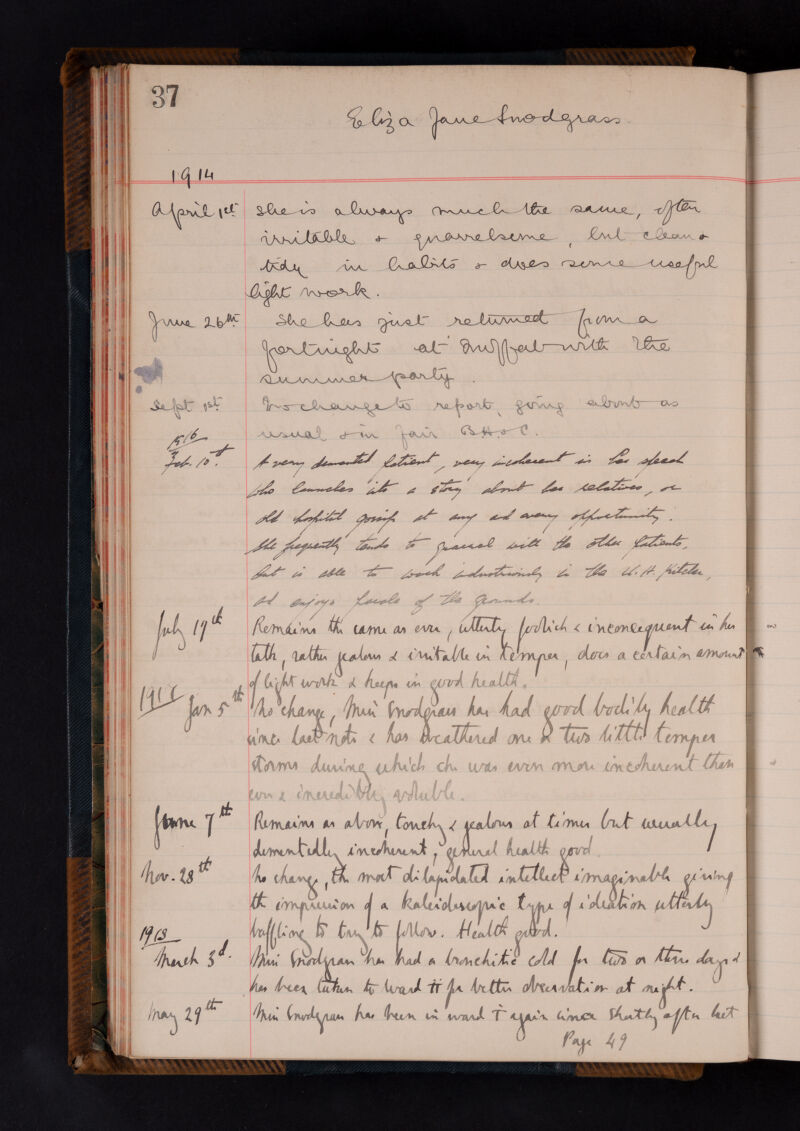 37
Eliza Jane Snodgrass
1914
April 1st She is always much the same, often
irritable & quarrelsome, but clean &
tidy in habits & does some useful
light work.
June 26th She has just returned from a
fortnight at Moffat with the
summer party.
Sept 1st No change to report, going about as
usual & in fair B H & C.
1916
Feb. 10th A very demented patient, very incoherent in her speech
who launches into a story about her relatives, or
old hospital gossip at any and every opportunity.
She frequently tends to quarrel with the other patients,
but is able to work industriously in the kitchen,
and enjoys parole of the grounds.
July 19th Remains the same as ever, utterly foolish & inconsequent in her
talk, rather jealous & irritable in temper, does a certain amount
of light work & keeps in good health.
Jan 5th No change, Miss Snodgrass has had good bodily health
since last note & has weathered one or two little temper
storms during which she was even more incoherent than
ever & incredibly voluble.
June 7th Remains as above, touchy & jealous at times but usually
dementedly incoherent, general health good.
Nov. 28th No change, the most dilapidated intellect imaginable giving
the impression of a kaleidoscopic type of ideation utterly
baffling to try to follow. Health good.
1918
March 3d. Miss Snodgrass has had a bronchitic cold for two or three days &
has been taken to ward II for better observation at night.
May 29th Miss Snodgrass has been in ward I again since shortly after last
Page 49